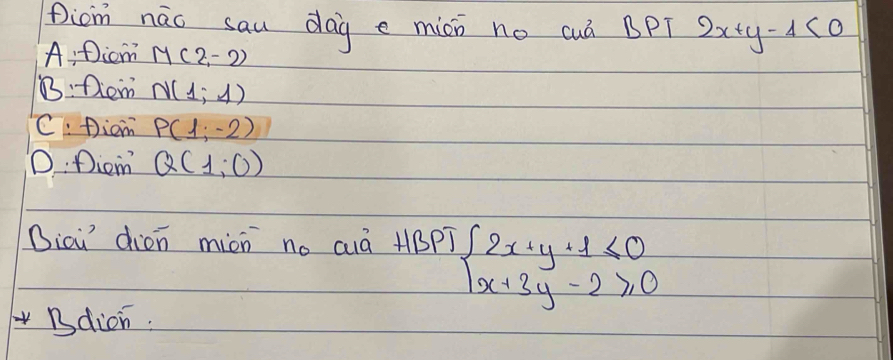 Điểm nào sau đây e miền no của BPT 2x+y-1<0
A: Điểm M(2,-2)
B: Điểm N(1; 1)
C: Điểm P(1; -2)
D: Điểm Q(1; 0)
Biểu diễn miền no của HBPT { 2x+y+1 ≤ 0
x+3y-2 ≥ 0
* Bdiễn: